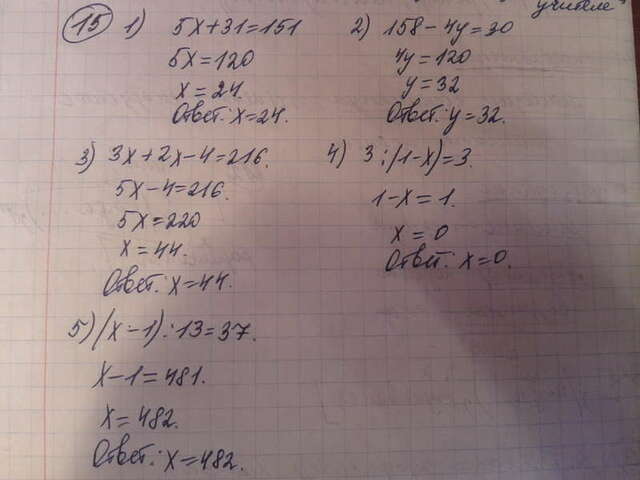 учителе
15 1) 5x+31=151
5x=120
x=24.
Ответ: x=24.
2) 158-4y=30
4y=120
y=32
Ответ: y=32.
3) 3x+2x-4=216.
5x-4=216.
5x=220
x=44.
Ответ: x=44.
4) 3:(1-x)=3.
1-x=1.
x=0
Ответ: x=0.
5) (x-1):13=37.
x-1=481.
x=482.
Ответ: x=482.